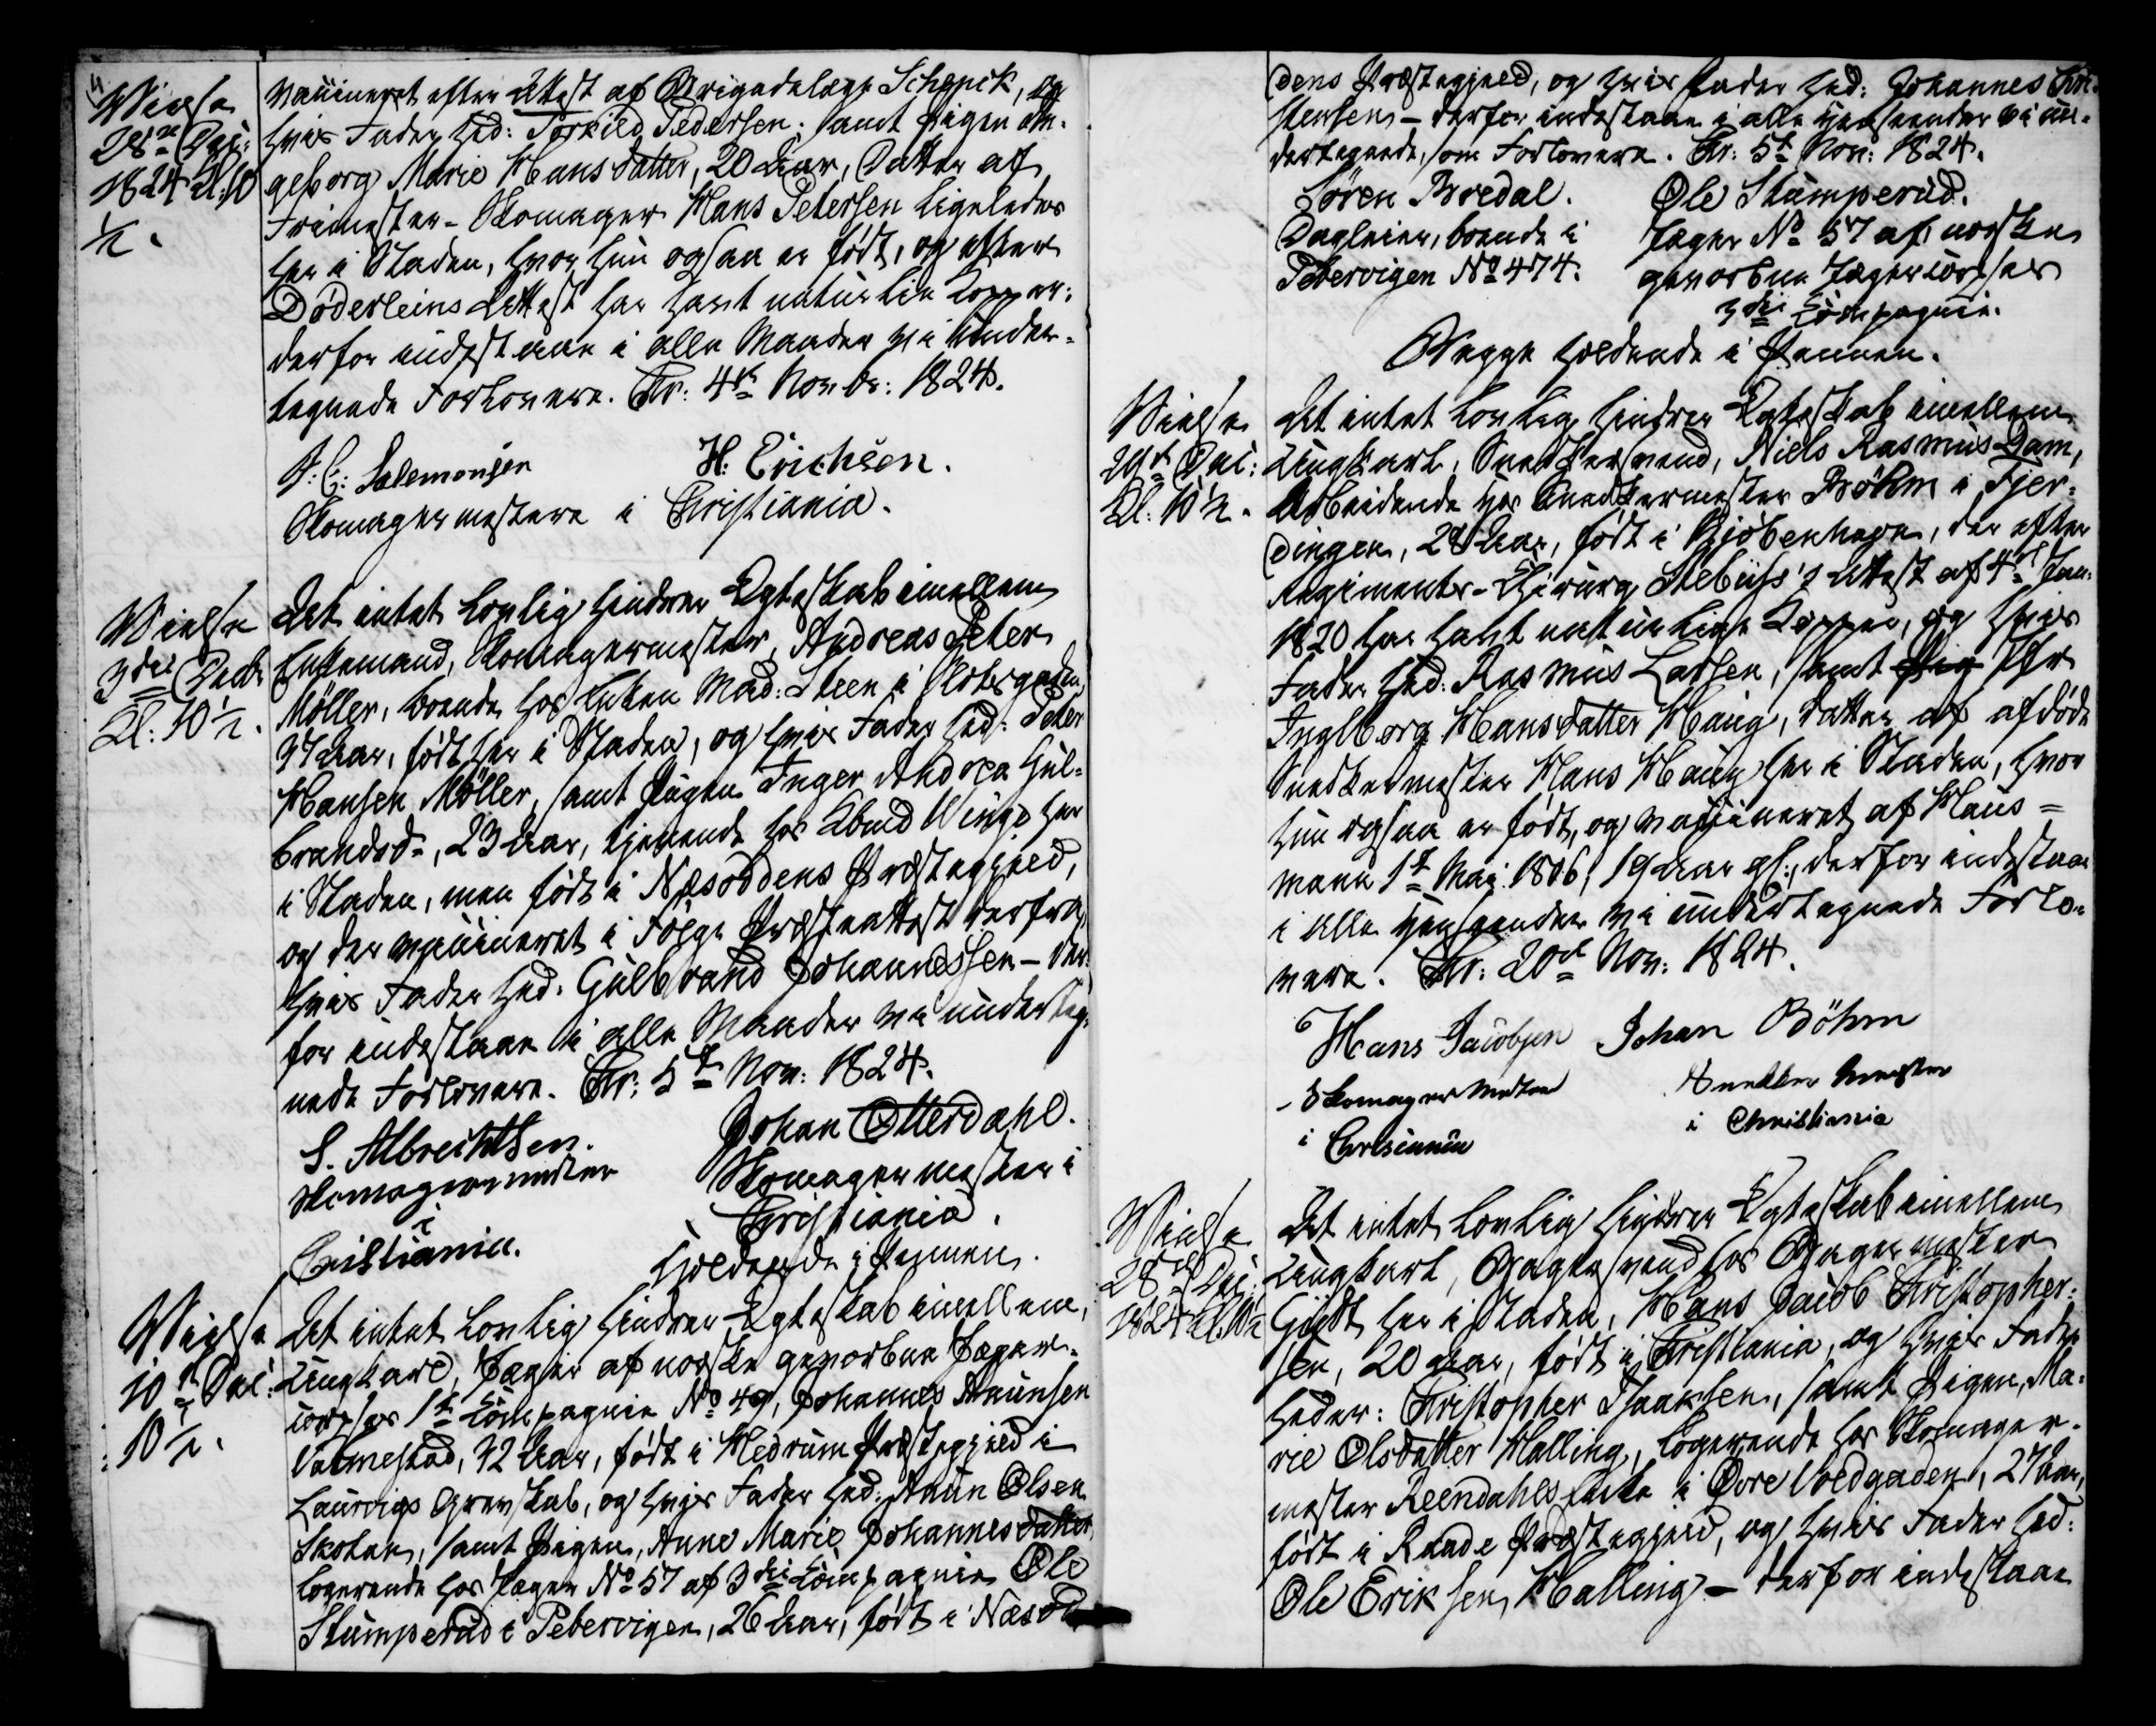 Vielse
28de Dec:
1824 Kl: 10
1/2.
vaccineret efter Attest af Brigadelæge Schepick, og
hvis Fader hed: Torkild Pedersen; samt Pigen In-
geborg Marie Hansdatter, 20 Aar, Datter af
Frimester-Skomager Hans Petersen ligeledes
her i Staden, hvor hun ogsaa er født, og efter
Døderleins Attest har havt naturlige Kopper;
derfor indestaae i alle Maader vi under-
tegnede Forlovere. Chr: 4de Novbr: 1824.
A: C: Salemonsen
H: Erichsen.
Skomagermestere i Christiania.
Vielse
3die Decbr
Kl: 10 1/2.
At intet lovlig hindrer Ægteskab imellem
Enkemand, Skomagermester, Andreas Peter
Möller, boende hos Enken Mad: Steen i
37 Aar, født her i Staden, og hvis Fader hed: Peter
Hansen Möller, samt Pigen Inger Andrea Gul-
brandsd:, 23 Aar, tjenende hos Kbmd Winge her
i Staden, men født i Næsoddens Præstegjeld,
og der vaccineret i Følge Præsteattest derfra,
hvis Fader hed: Gulbrand Johannessen - der-
for indestaae i alle Maader vi underteg-
nede Forlovere. Chr: 5te Nov: 1824.
S. Albrechtsen.
Skomagermester
i
Cristiania.
Johan Otterdahl.
Skomagermester i
Christiania.
holdende i Pennen.
Vielse
10de Dec:
10 1/2.
At intet lovlig hindrer Ægteskab imellem,
Ungkarl, Jæger af norske gevorbne Jæger-
corpses 1te Compagnie No 49, Johannes Amunsen
Valmestad, 32 Aar, født i Hedrum Præstegjeld i
Laurvigs Grevskab, og hvis Fader hed: Amun Olsen
Skotan, samt Pigen, Anne Marie Johannesdatter,
logerende hos Jæger No 57 af 3die Compagnie Ole
Stumperud i Pebervigen, 26 Aar, født i Næsod-
dens Præstegjeld, og hvis Fader hed: Johannes Chri-
stensen - derfor indestaae i alle Henseender vi un-
dertegnede, som Forlovere. Chr: 5te Nov: 1824.
Sören Bredal.
Dagleier, boende i
Pebervigen No 474.
Ole Stumperud.
Jæger No 57 af norske
gevorbne Jægercorpses
3die Compagnie.
Begge holdende i Pennen.
Vielse
29de Dec:
Kl: 10 1/2.
At intet lovlig hindrer Ægteskab imellem
Ungkarl, Snedkersvend, Niels Rasmus Dam,
Arbeidende hos Snedkermester Böhm i Fjer-
dingen, 28 Aar, født i Kjöbenhagn, der efter
Regiments-Chirurg Stebuss's Attest af 4de Jan:
1820 har havt naturlige Kopper, og hvis
Fader hed: Rasmus Larsen, samt Pig Jfr
Ingeborg Hansdatter Haug, Datter af afdøde
Snedkermester Hans Haug her i Staden, hvor
hun ogsaa er født, og vaccineret af Haus-
mann 1te Mai 1806; 19 Aar gl:, derfor indestaae
i alle Henseender vi undertegnede Forlo-
vere. Chr: 20de Nov: 1824.
Hans Jacobsen
Skomagermester
i Chrisiania
Johan Böhm
Snedker Mester
i Christiania
Vielse
28de Dec:
1824 Kl: 10 1/2
At intet lovlig hindrer Ægteskab imellem
Ungkarl, Bagersvend hos Bagermester
Gjødt her i Staden, Hans Jacob Christopher-
sen, 20 Aar, født i Christiania, og hvis Fader
heder: Christopher Isaaksen, samt Pigen, Ma-
rie Olsdatter Halling, logerende hos Skomager-
mester Reendahls Enke i Øvre Voldgaden, 27 Aar,
født i Raade Præstegjeld, og hvis Fader hed:
Ole Eriksen Halling - derfor indestaae